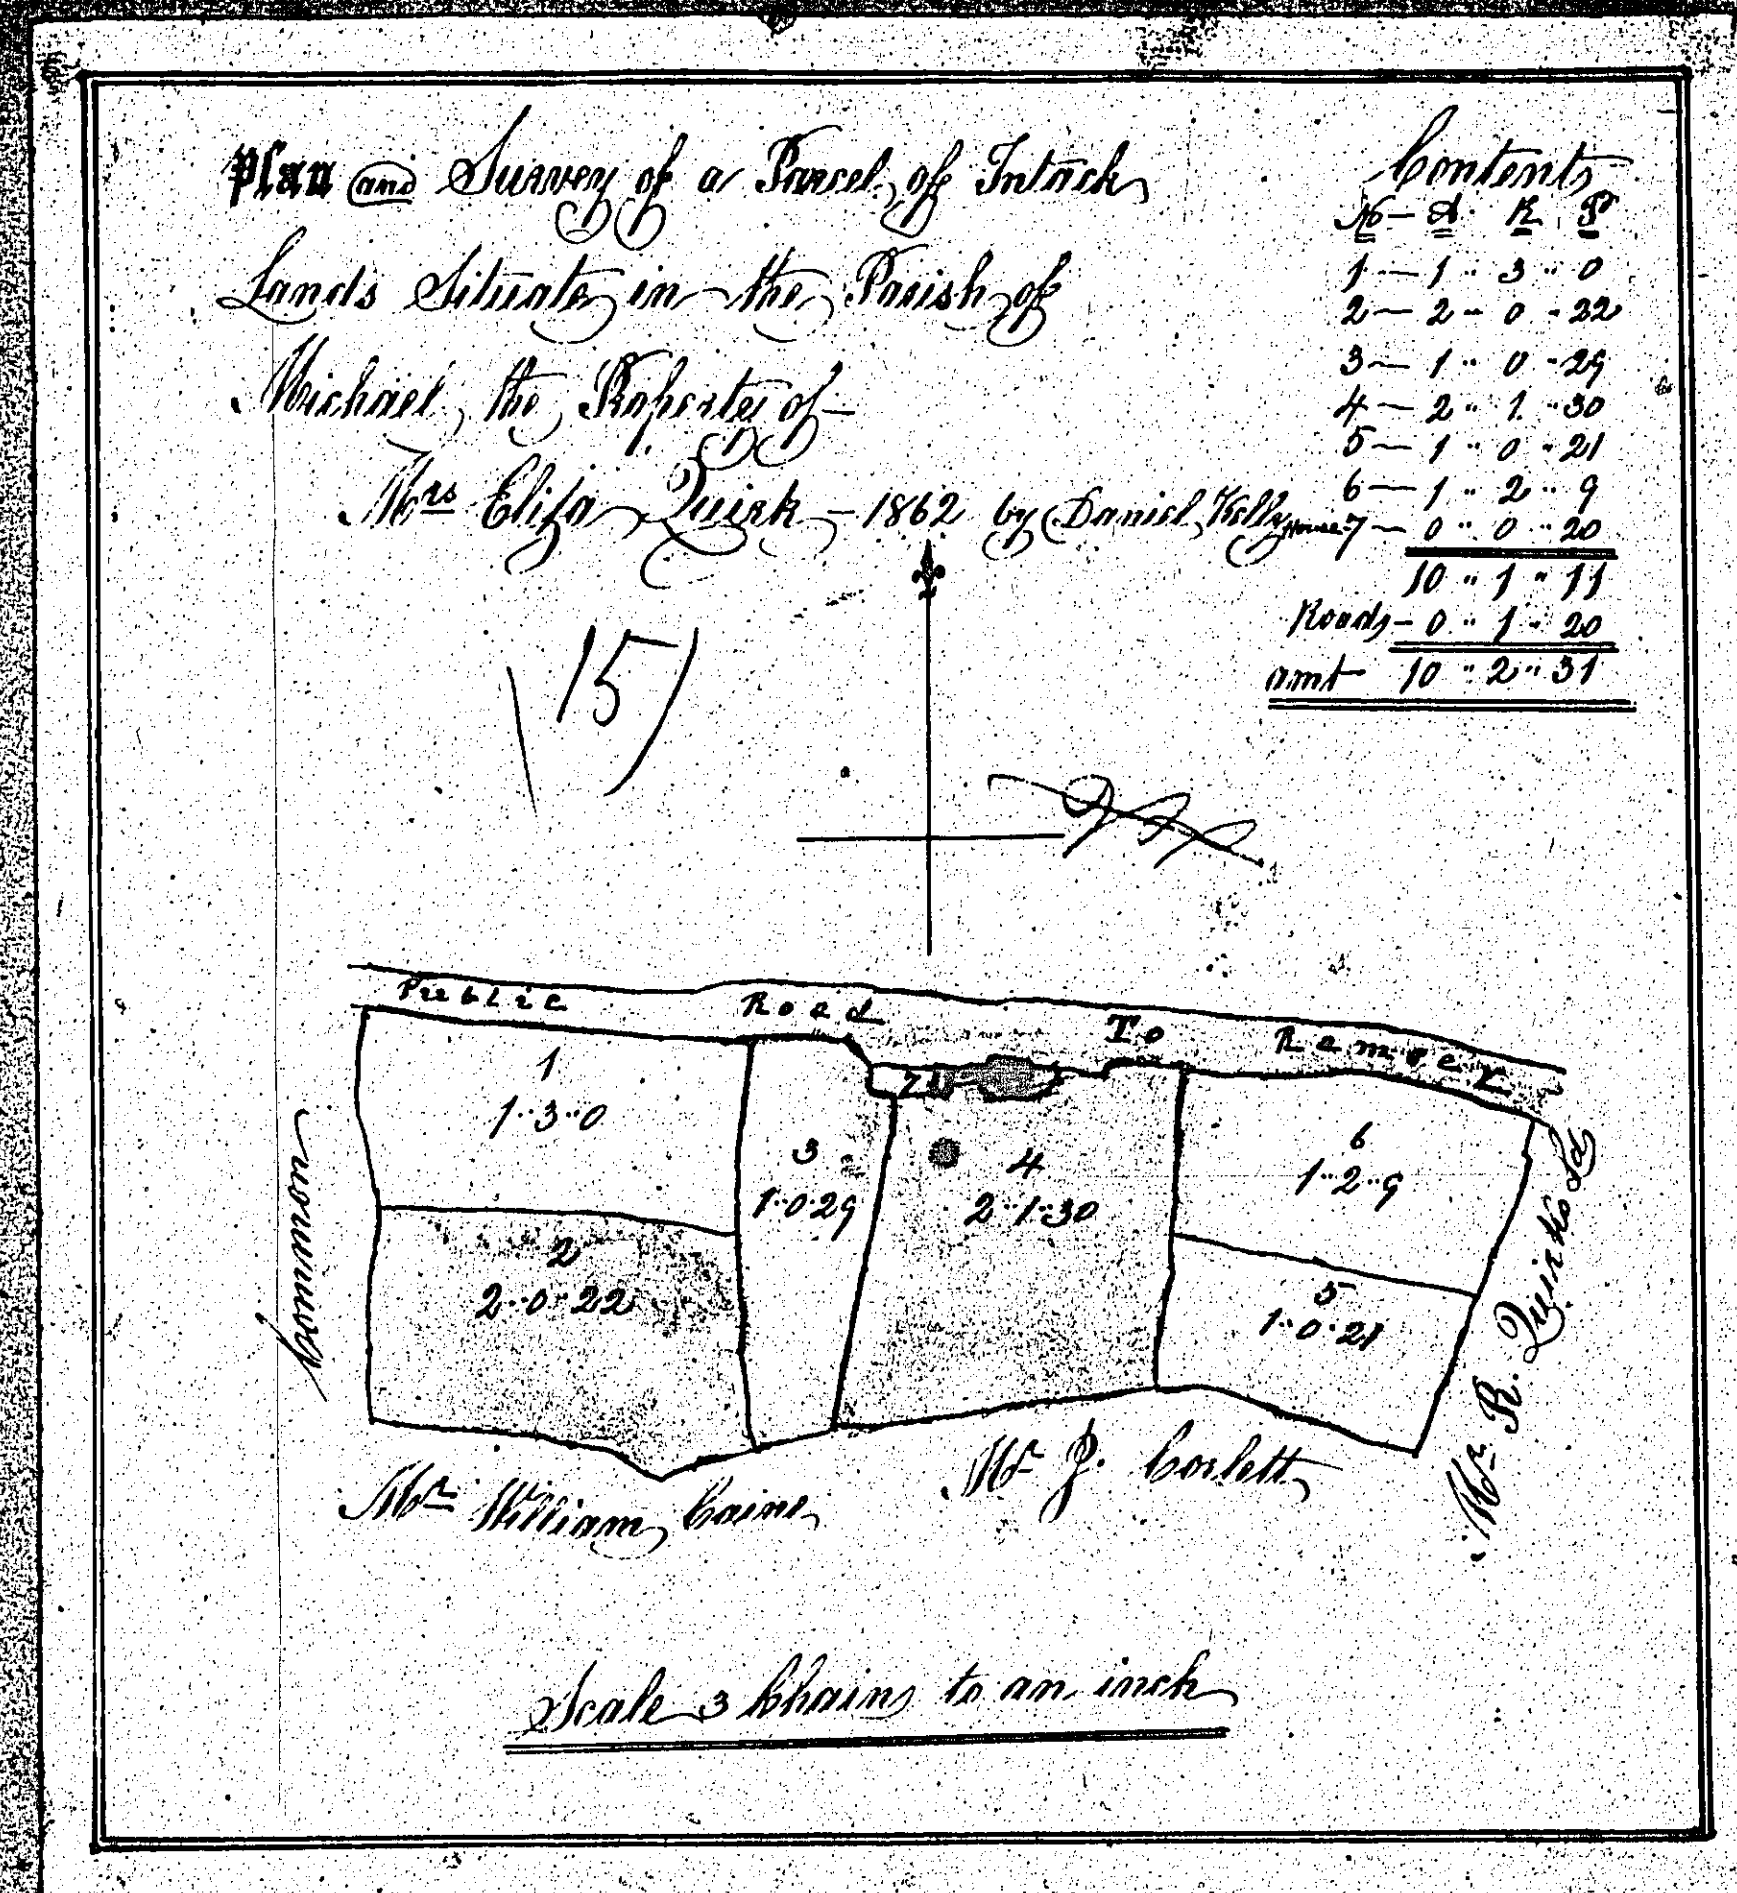 Plan and Survey of a Parcel of Intack
Lands Situate in the Parish of
Michael the Property of —
Mrs Eliza Quirk — 1862 by Daniel Kelly
Contents
No — A R P
1 — 1 ·· 3 ·· 0
2 — 2 ·· 0 ·· 22
3 — 1 ·· 0 ·· 29
4 — 2 ·· 1 ·· 30
5 — 1 ·· 0 ·· 21
6 — 1 ·· 2 ·· 9
House 7 — 0 ·· 0 ·· 20
10 ·· 1 ·· 11
Roads — 0 ·· 1 ·· 20
amt 10 ·· 2 ·· 31
15
Public Road To
1
1··3··0
2
2··0··22
3
1··0·29
7
4
2··1··30
6
1··2··9
5
1··0··21
Common
Mr R. Quirks Ld
Mr William Caine
Mr J. Corlett
Scale 3 Chains to an inch